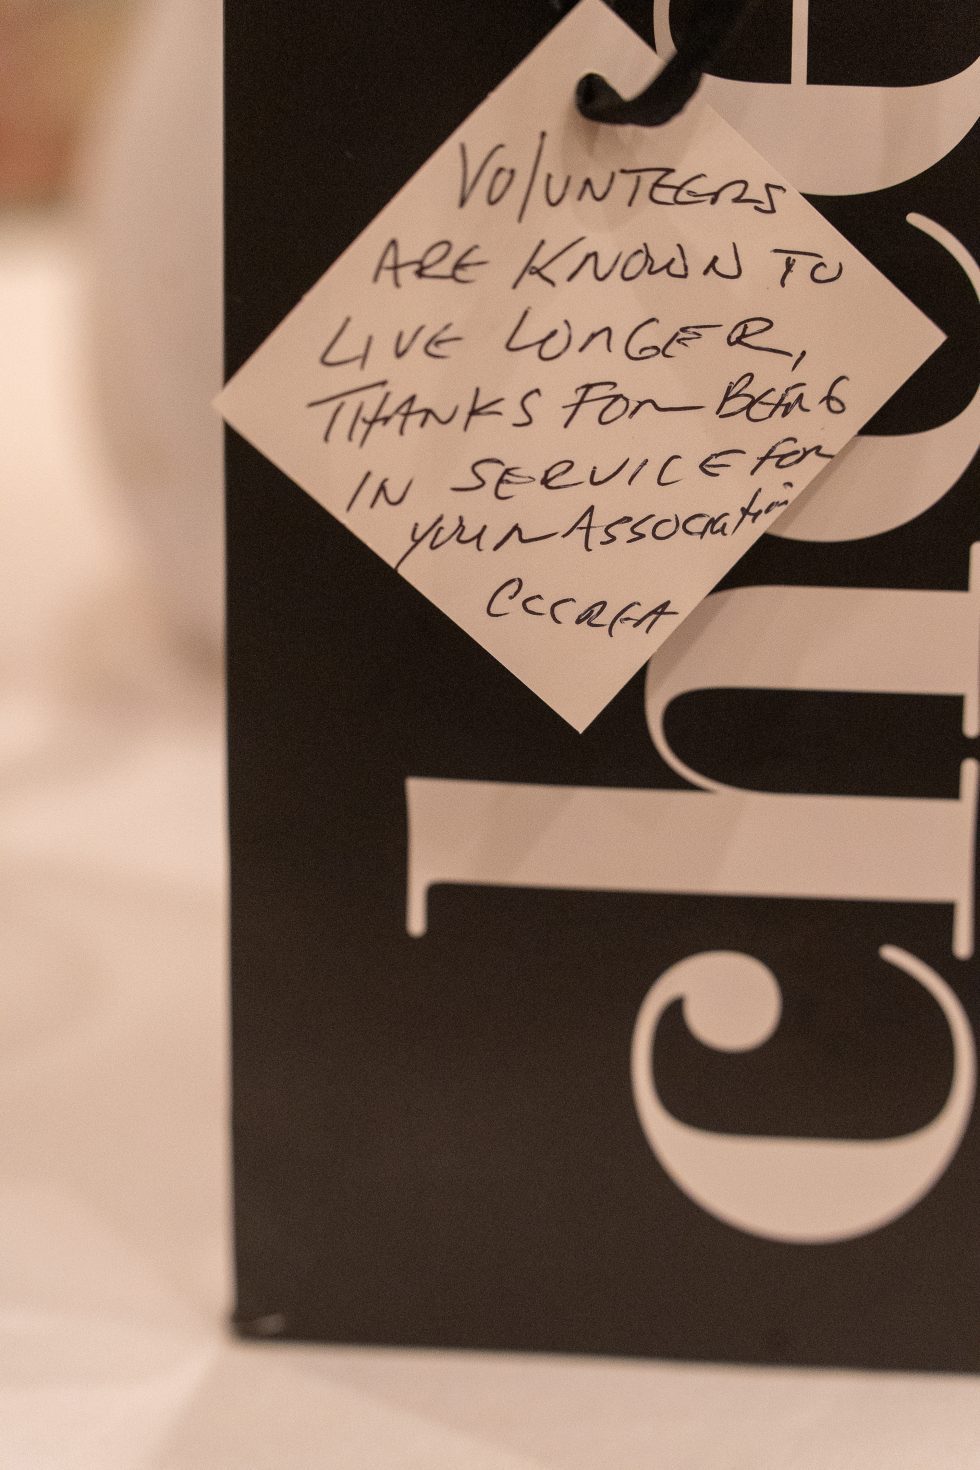 VOLUNTEERS
ARE KNOWN TO
LIVE LONGER,
THANKS FOR BEING
IN SERVICE FOR
YOUR ASSOCIATION
CCCREA
chec